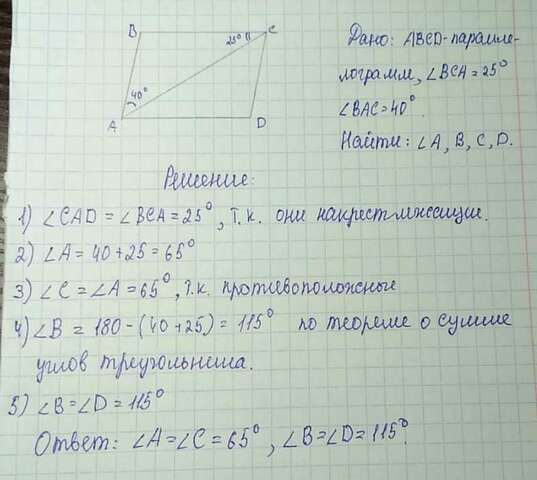 B
C
25°
40°
A
D
Дано: ABCD-паралле-
лограмм, ∠BCA=25°
∠BAC=40°.
Найти: ∠A, B, C, D.
Решение:
1) ∠CAD=∠BCA=25°, т.к. они накрест лежащие.
2) ∠A=40+25=65°
3) ∠C=∠A=65°, т.к. противоположные
4) ∠B = 180-(40+25)=115° по теореме о сумме
углов треугольника.
5) ∠B=∠D=115°
Ответ: ∠A=∠C=65°, ∠B=∠D=115°.